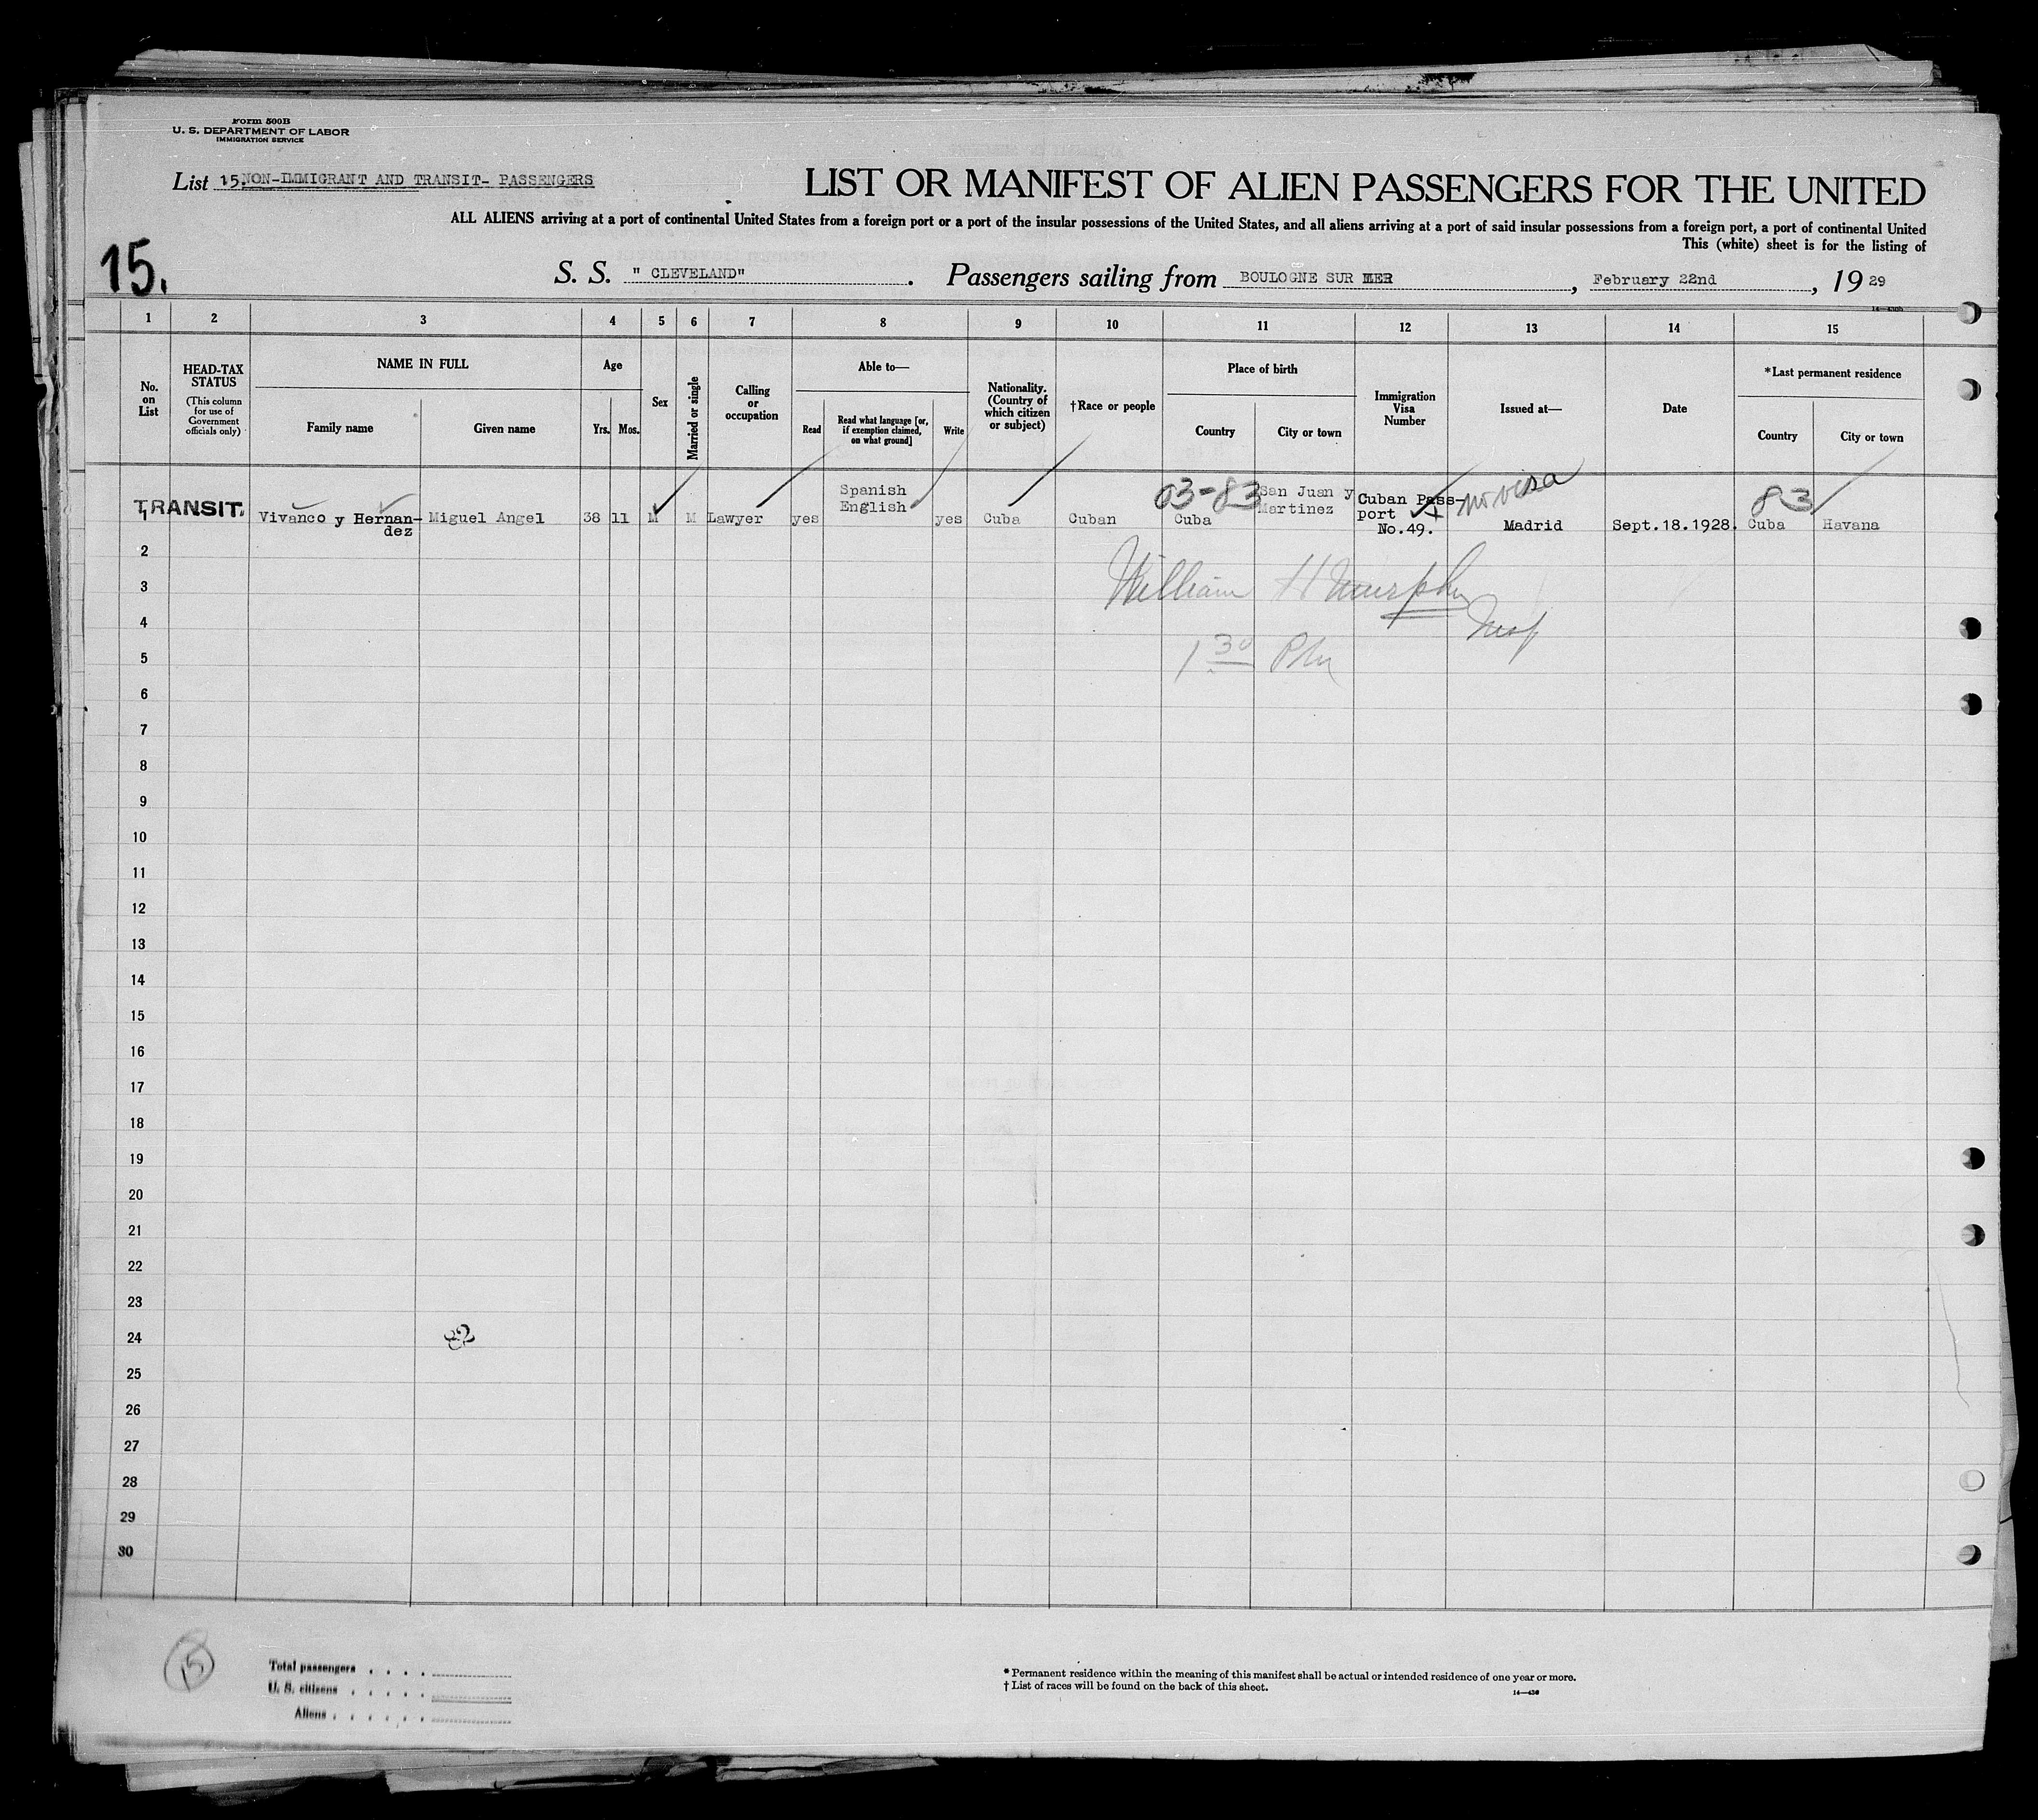 Form 500B
U. S. DEPARTMENT OF LABOR
IMMIGRATION SERVICE
List 15. NON-IMMIGRANT AND TRANSIT- PASSENGERS
LIST OR MANIFEST OF ALIEN PASSENGERS FOR THE UNITED
ALL ALIENS arriving at a port of continental United States from a foreign port or a port of the insular possessions of the United States, and all aliens arriving at a port of said insular possessions from a foreign port, a port of continental United
This (white) sheet is for the listing of
15.
S. S. " CLEVELAND" . Passengers sailing from BOULOGNE SUR MER , February 22nd , 19 29
1 2 3 4 5 6 7 8 9 10 11 12 13 14 15
No. on List
HEAD-TAX STATUS
(This column for use of Government officials only)
NAME IN FULL
Family name
Given name
Age
Yrs.
Mos.
Sex
Married or single
Calling or occupation
Able to—
Read
Read what language [or, if exemption claimed, on what ground]
Write
Nationality. (Country of which citizen or subject)
†Race or people
Place of birth
Country
City or town
Immigration Visa Number
Issued at—
Date
*Last permanent residence
Country
City or town
03-83
no visa
83
TRANSIT.
1
Vivanco y Hernan-
dez
Miguel Angel
38
11
M
M
Lawyer
yes
Spanish
English
yes
Cuba
Cuban
Cuba
San Juan y
Martinez
Cuban Pass-
port
No.49.
Madrid
Sept.18.1928.
Cuba
Havana
William H Murphy
Insp
1 30 PM
2
3
4
5
6
7
8
9
10
11
12
13
14
15
16
17
18
19
20
21
22
23
24
25
26
27
28
29
30
15
Total passengers . . . .
U. S. citizens . . . . .
Aliens . . . . . .
* Permanent residence within the meaning of this manifest shall be actual or intended residence of one year or more.
† List of races will be found on the back of this sheet.